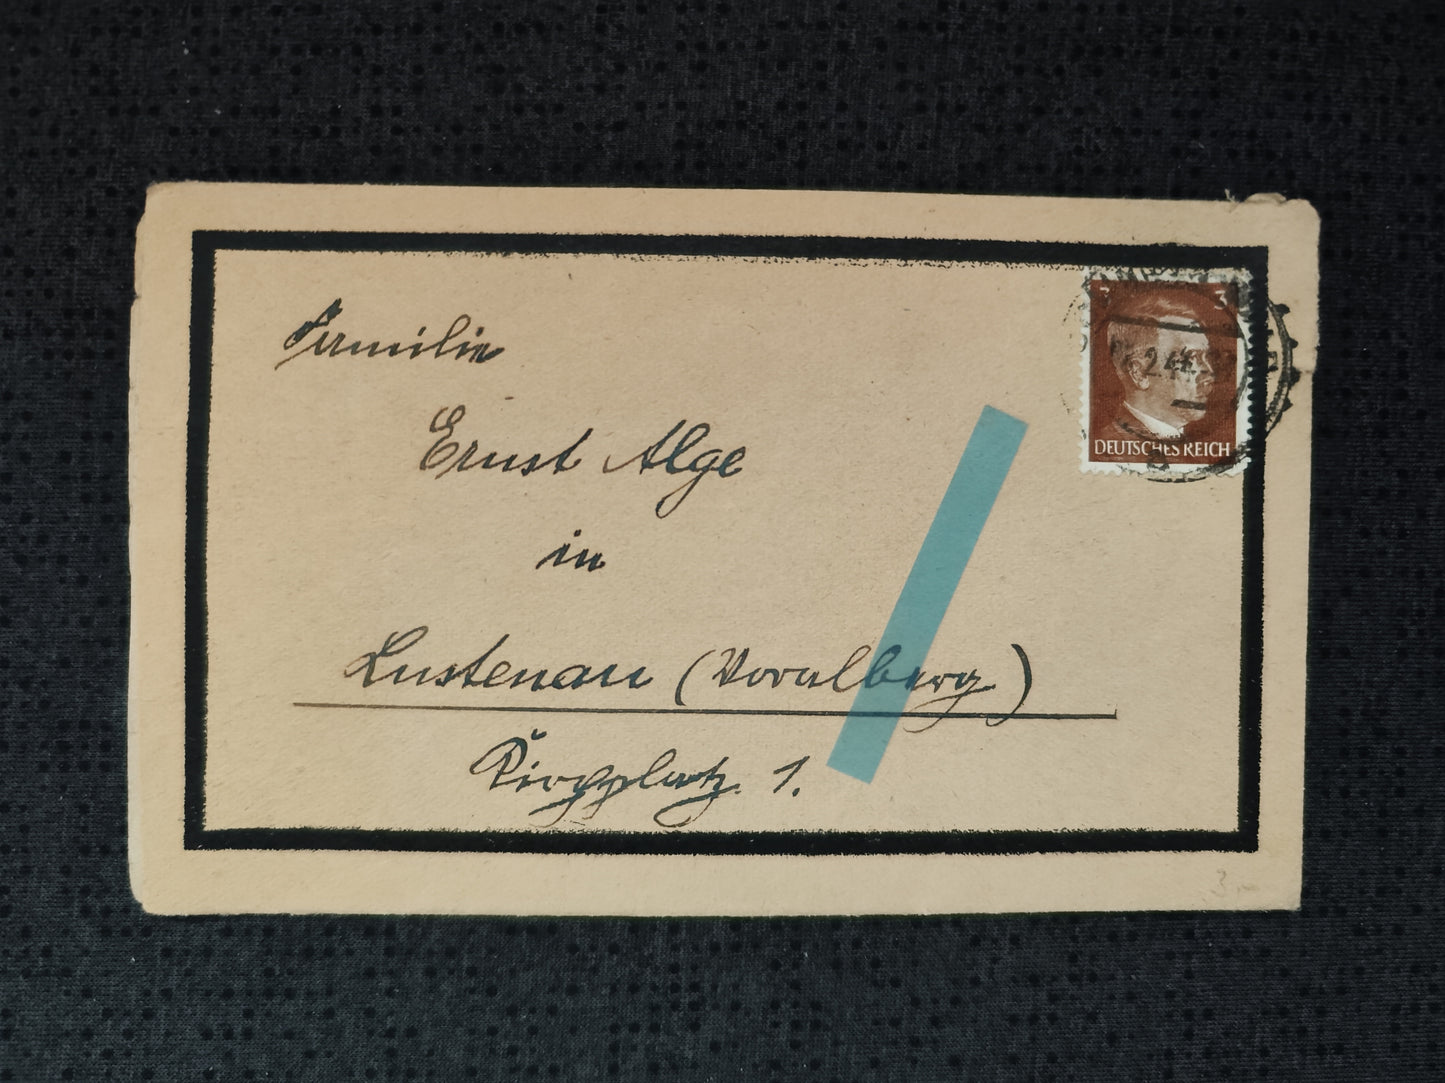 Familie
Ernst Alge
in
Lustenau (Voralberg)
Kirchplatz 1.
3 3
DEUTSCHES REICH